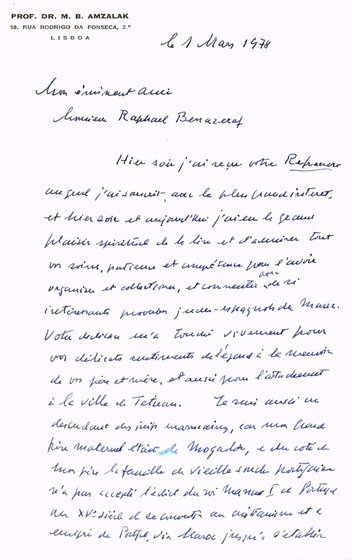 PROF. DR. M. B. AMZALAK
58, RUA RODRIGO DA FONSECA, 2.º
LISBOA
le 1 Mars 1978
Mon éminent ami
Monsieur Raphael Benazeraf
Hier soir j'ai reçu votre Refranero
auquel j'ai souscrit, avec le plus grand intéret,
et hier soir et aujourd'hui j'ai eu le grand
plaisir spirituel de le lire et d'admirer tout
vos soins, patience et compétence pour l'avoir
organisé et collectionné, et commenter
intéressants proverbes judeo-espagnols du Maroc.
Votre dedicace m'a touché vivement pour
vos délicats sentiments à l'égard à la memoire
de vos père et mère, et aussi pour l'attachement
à la ville de Tetuan. Je suis aussi un
descendant des juifs marocains, car mon grand
père maternel était de Mogador, e du coté de
mon père la famille de vieille souche portugaise
n'a pas accepté l'édict du roi Manuel I de Portugal
du XVe siècle de se convertir au christianisme et a
emigré de Portugal, via Maroc jusqu'a s'établir